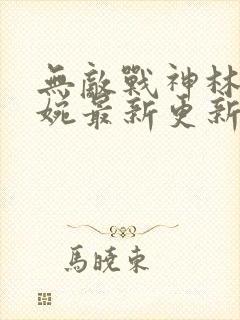 無敵戰神林
婉最新更新
馬曉東